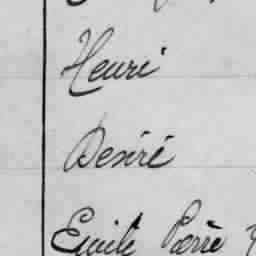 Henri
Désiré
Emile Pierre